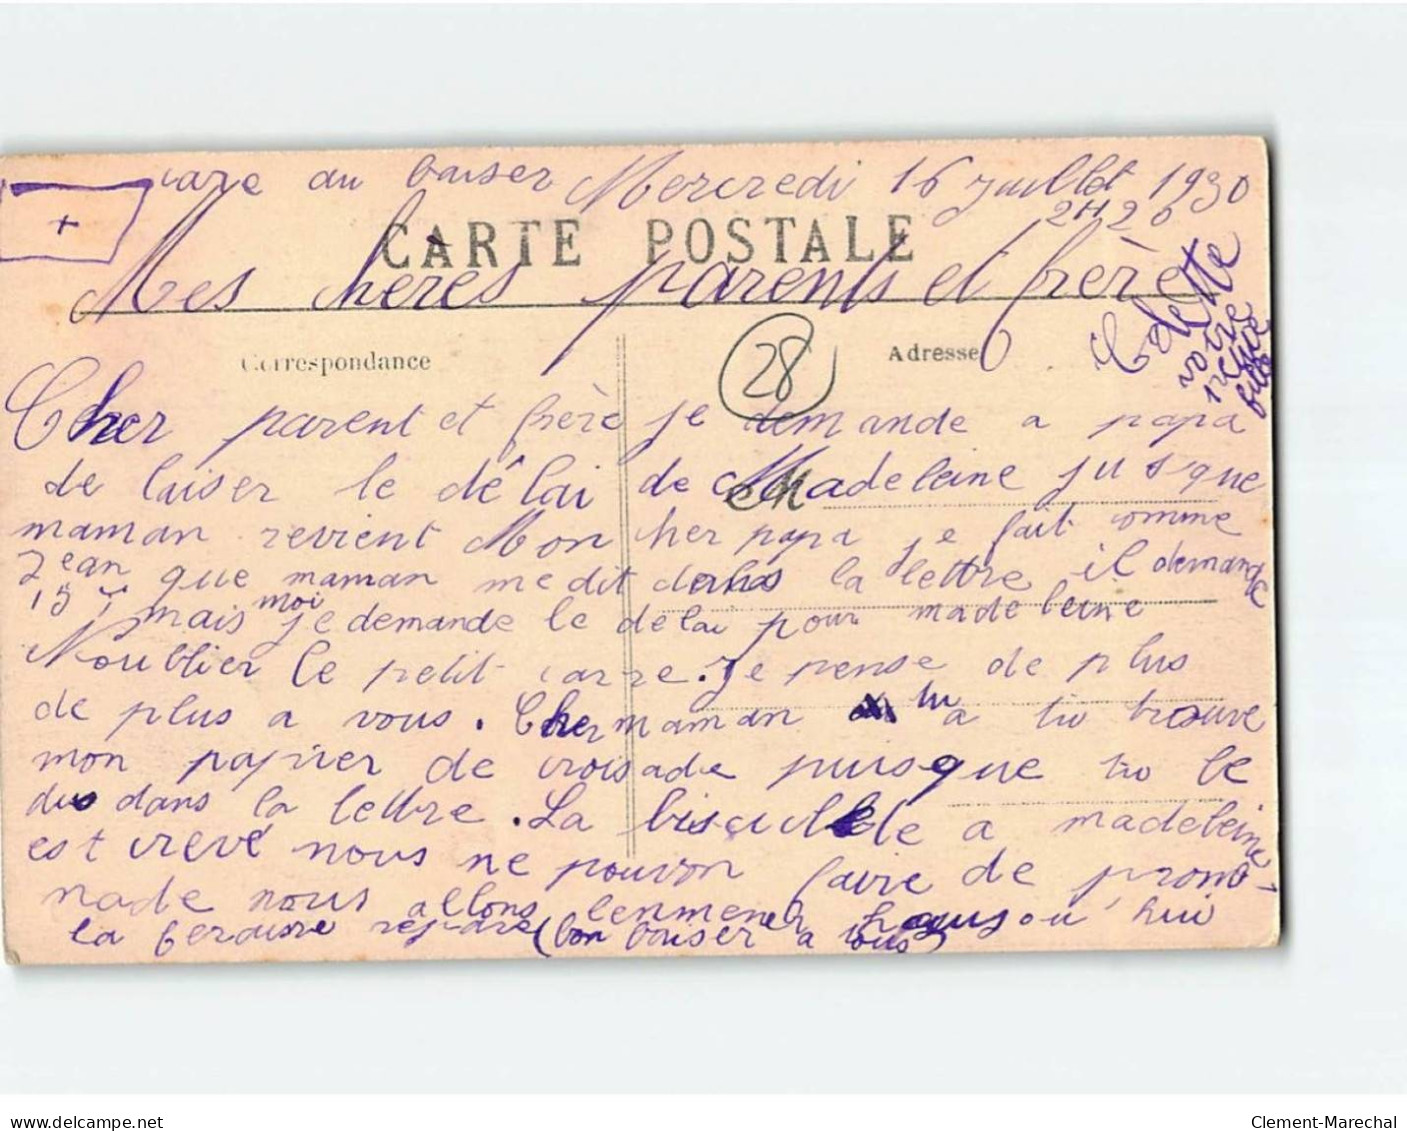 +
care au baiser Mercredi 16 juillet 1930
2H20
CARTE POSTALE
Mes hères parents et frère
Odette
votre
fille
Correspondance
Adresse
28
Cher parent et frère je demande a papa
de laiser le dêlai de Madeleine jusque
maman revient Mon her papa je fait comme
Jean que maman me dit dans la lettre il demande
15 mais moi je demande le delai pour madeleine
Noublier le petit carre. Je pense de plus
de plus a vous. Cher maman tu a tu trouve
mon papier de croisade puisque tu le
dis dans la lettre. La biscuclette a madeleine
est crevé nous ne pouvon faire de prom-
nade nous allons lenmener haujsou'hui
la feraire repare (bon baiser a tous)
Clement-Marechal
www.delcampe.net